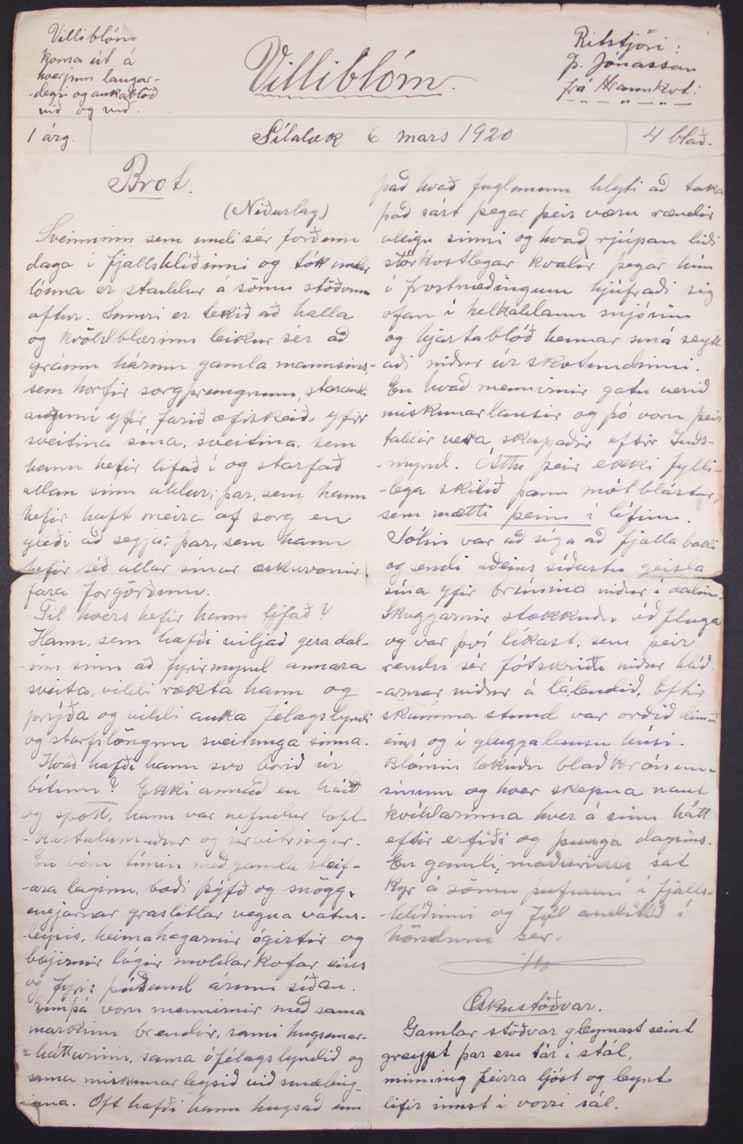 Villiblóm
koma út á
hverjum laugar-
-degi og aukablöð
við og við.
Villiblóm.
Ritstjóri:
Þ. Jónasson
frá Hraunkoti
1 árg.
Sílalæk 6 mars 1920
4 blað.
Brot.
(Niðurlag)
Sveinninn sem undi sér forðum
daga í fjallshlíðinni og tók undir
lóma er staddur á sömu stöðvum
aftur. Sumri er tekið að halla
og kvöldblærinn leikur sér að
gráum hárum gamla mannsins-
sem horfir sorgþrungnum, starandi
augum yfir farið æfiskeið, yfir
sveitina sína, sveitina, sem
hann hefir lifað í og starfað
allan sinn aldur; þar, sem hann
hefir haft meira af sorg en
gleði að segja; þar, sem hann
hefir séð allar sínar æskuvonir
fara forgörðum.
Til hvers hefir hann lifað?
Hann, sem hafði viljað gera dal-
-inn sinn að fyrirmynd annara
sveita, vildi rækta hann og
prýða og vildi auka félagslyndi
og starfslöngun sveitunga sinna.
Hvað hafði hann svo borið úr
bítum? Ekki annað en háð
og spott, hann var nefndur loft-
-kastalamaður og sérvitringur.
En voru túnin með gamla
laginu, bæði þýfð og snögg,
engjarnar graslitlar vegna vatns-
-leysis, heimahagarnir ógirtir og
bæjirnir lágir moldarkofar eins
og fyrir þúsund árum síðan.
Ennþá voru mennirnir með sama
markinu brendir, sami hugsunar-
-hátturinn, sama ófélagslyndið og
sama miskunarleysið við smæling-
-jana. Oft hafði hann hugsað um
það hvað fuglunum hlyti að taka
það sárt þegar þeir væru rændir
eign sinni og hvað rjúpan liði
stórkostlegar kvalir þegar hún
í frosthæðingnum hjúfraði sig
ofan í helkaldann snjóinn
og hjartablóð hennar smá seytl-
aði niður úr skotundinni.
En hvað mennirnir gátu verið
miskunarlausir og þó voru þeir
taldir vera skapaðir eftir Guðs-
-mynd. Áttu þeir ekki fylli-
-lega skilið þann mótblástur,
sem mætti þeim í lífinu.
Sólin var að síga að fjalla baki
og sendi aðeins síðustu geisla
sína yfir brúnina niður í dalinn.
Skuggarnir stækkuðu óðfluga
og var því líkast, sem þeir
rendu sér fótskriðu niður hlíð-
-arnar niður á láglendið. Eftir
skamma stund var orðið dimt
eins og í gluggalausu húsi.
Blómin lokuðu bladkrónum
sínum og hver skepna naut
kvöldsins hver á sinn hátt
eftir erfiði og þunga dagsins.
En gamli maðurinn sat
kyr á sömu þúfunni í fjalls-
-hlíðinni og fól andlitið í
höndum sér.
Æskustöðvar.
Gamlar stöðvar gleymast seint
greypt þar eru tár í stál,
minning þeirra ljóst og leynt
lifir innst í vorri sál.